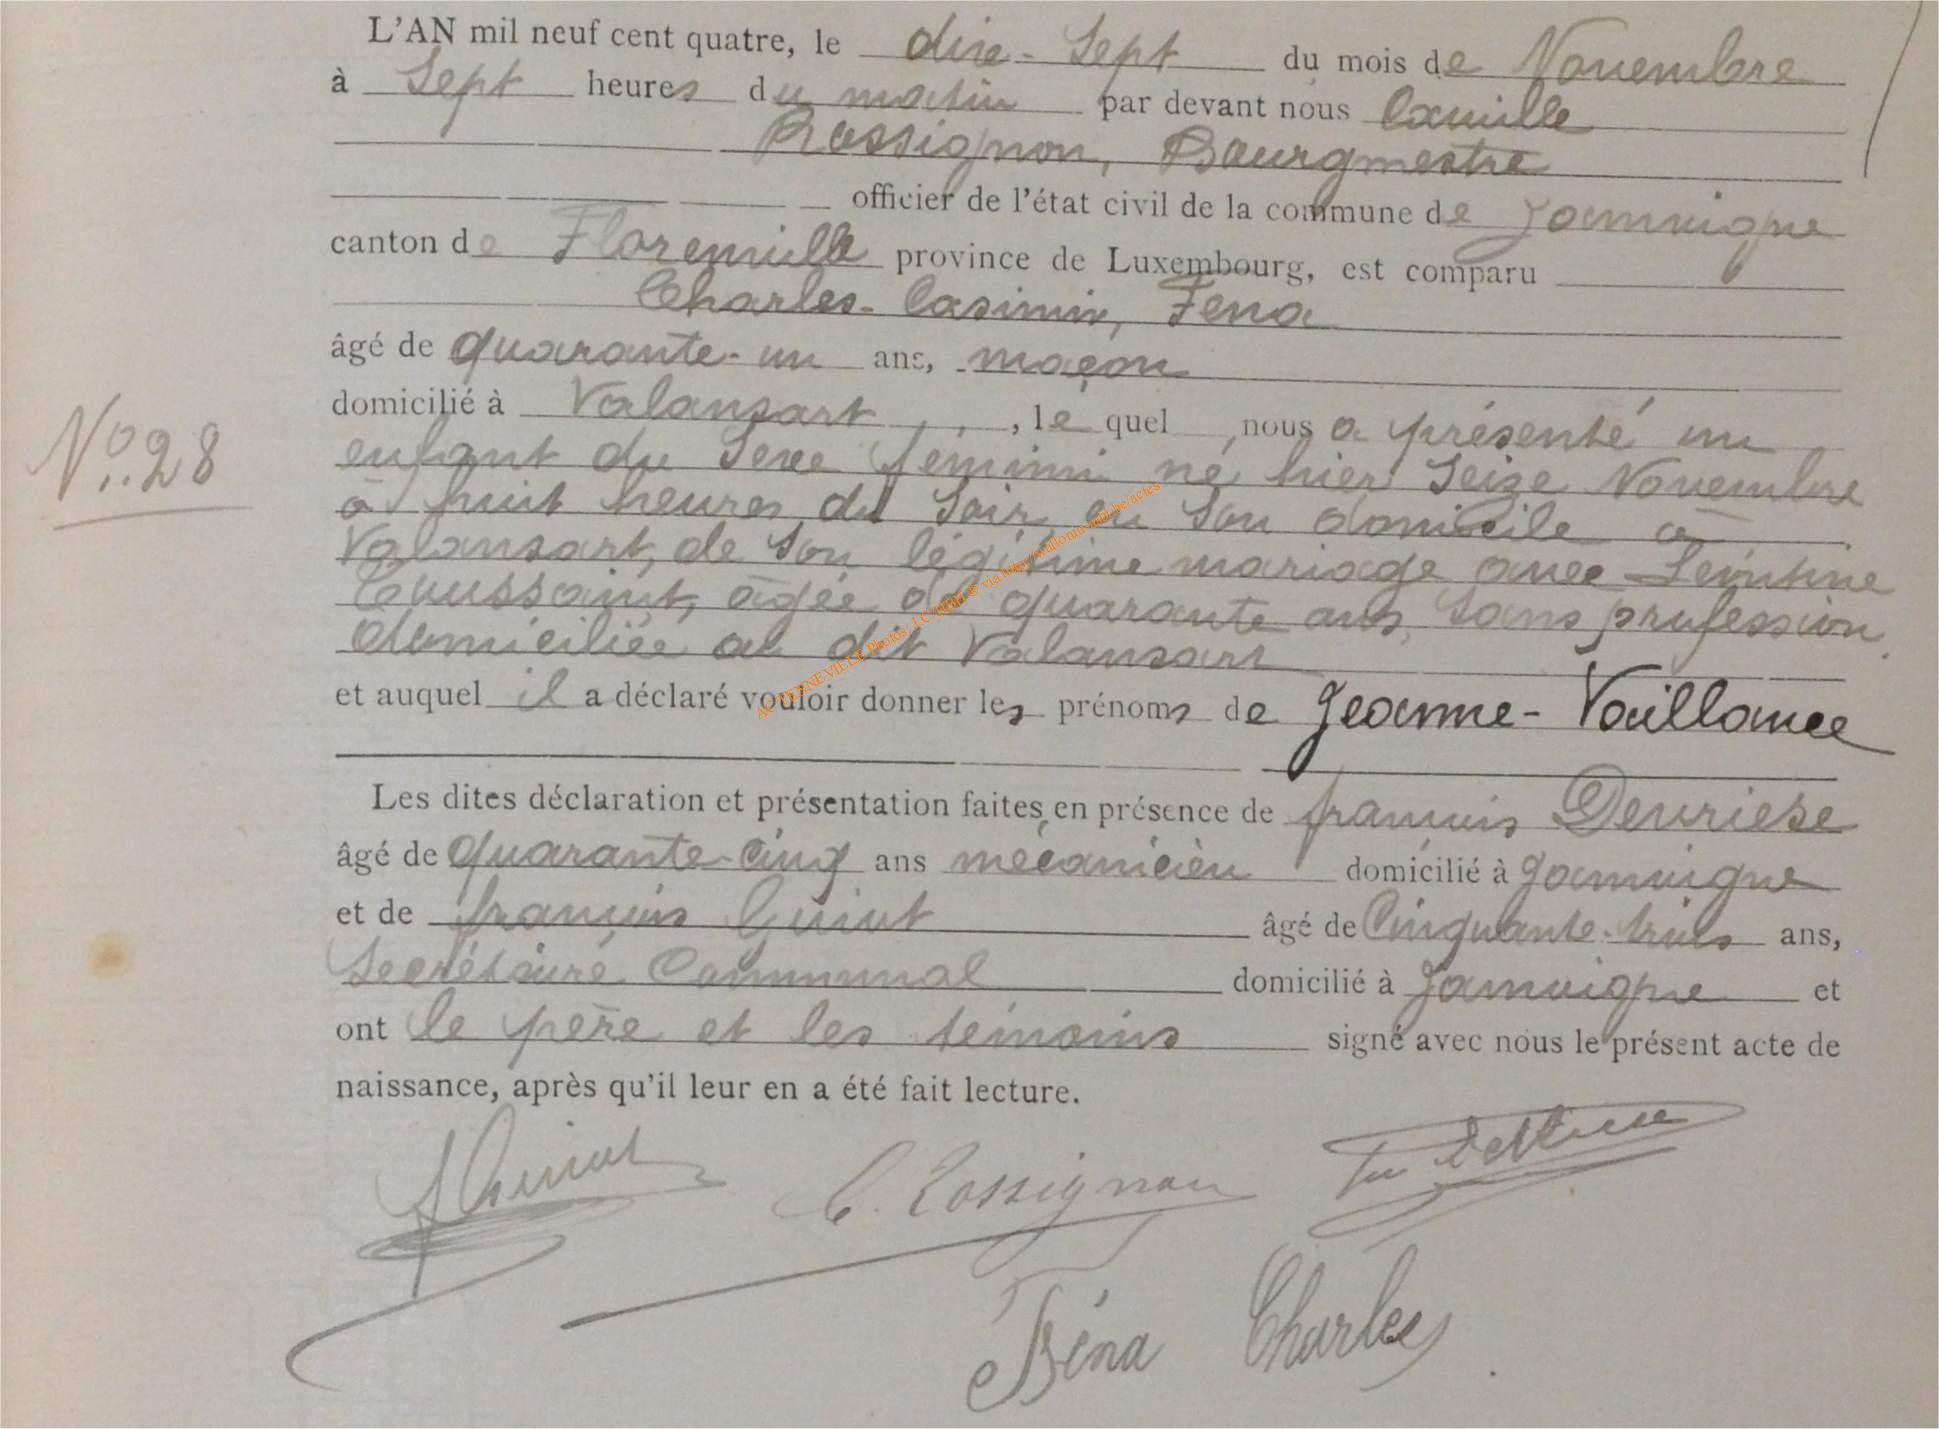 L'AN mil neuf cent quatre, le dix-Sept du mois de Novembre
à Sept heures du matin par devant nous Camille
Rossignon, Bourgmestre
officier de l'état civil de la commune de Jamoigne
canton de Florenville province de Luxembourg, est comparu
Charles-Casimir, Fena
âgé de quarante-un ans, maçon
domicilié à Valansart, lequel nous a présenté un
enfant du Sexe féminin né hier Seize Novembre
à huit heures du Soir en Son domicile à
Valansart, de Son légitime mariage avec Léontine
Toussaint, âgée de quarante ans, Sans profession,
domiciliée au dit Valansart
N° 28
et auquel il a déclaré vouloir donner les prénoms de Jeanne-Vaillance
Les dites déclaration et présentation faites en présence de françois Devriese
âgé de quarante-cinq ans mécanicien domicilié à Jamoigne
et de françois Guiot âgé de Cinquante-trois ans,
Secrétaire Communal domicilié à Jamoigne et
ont le père et les témoins signé avec nous le présent acte de
naissance, après qu'il leur en a été fait lecture.
f Guiot C. Rossignon Devriese
Féna Charles
ACTERNEVILLE Photos via http://wallonia-asbl.be/actes